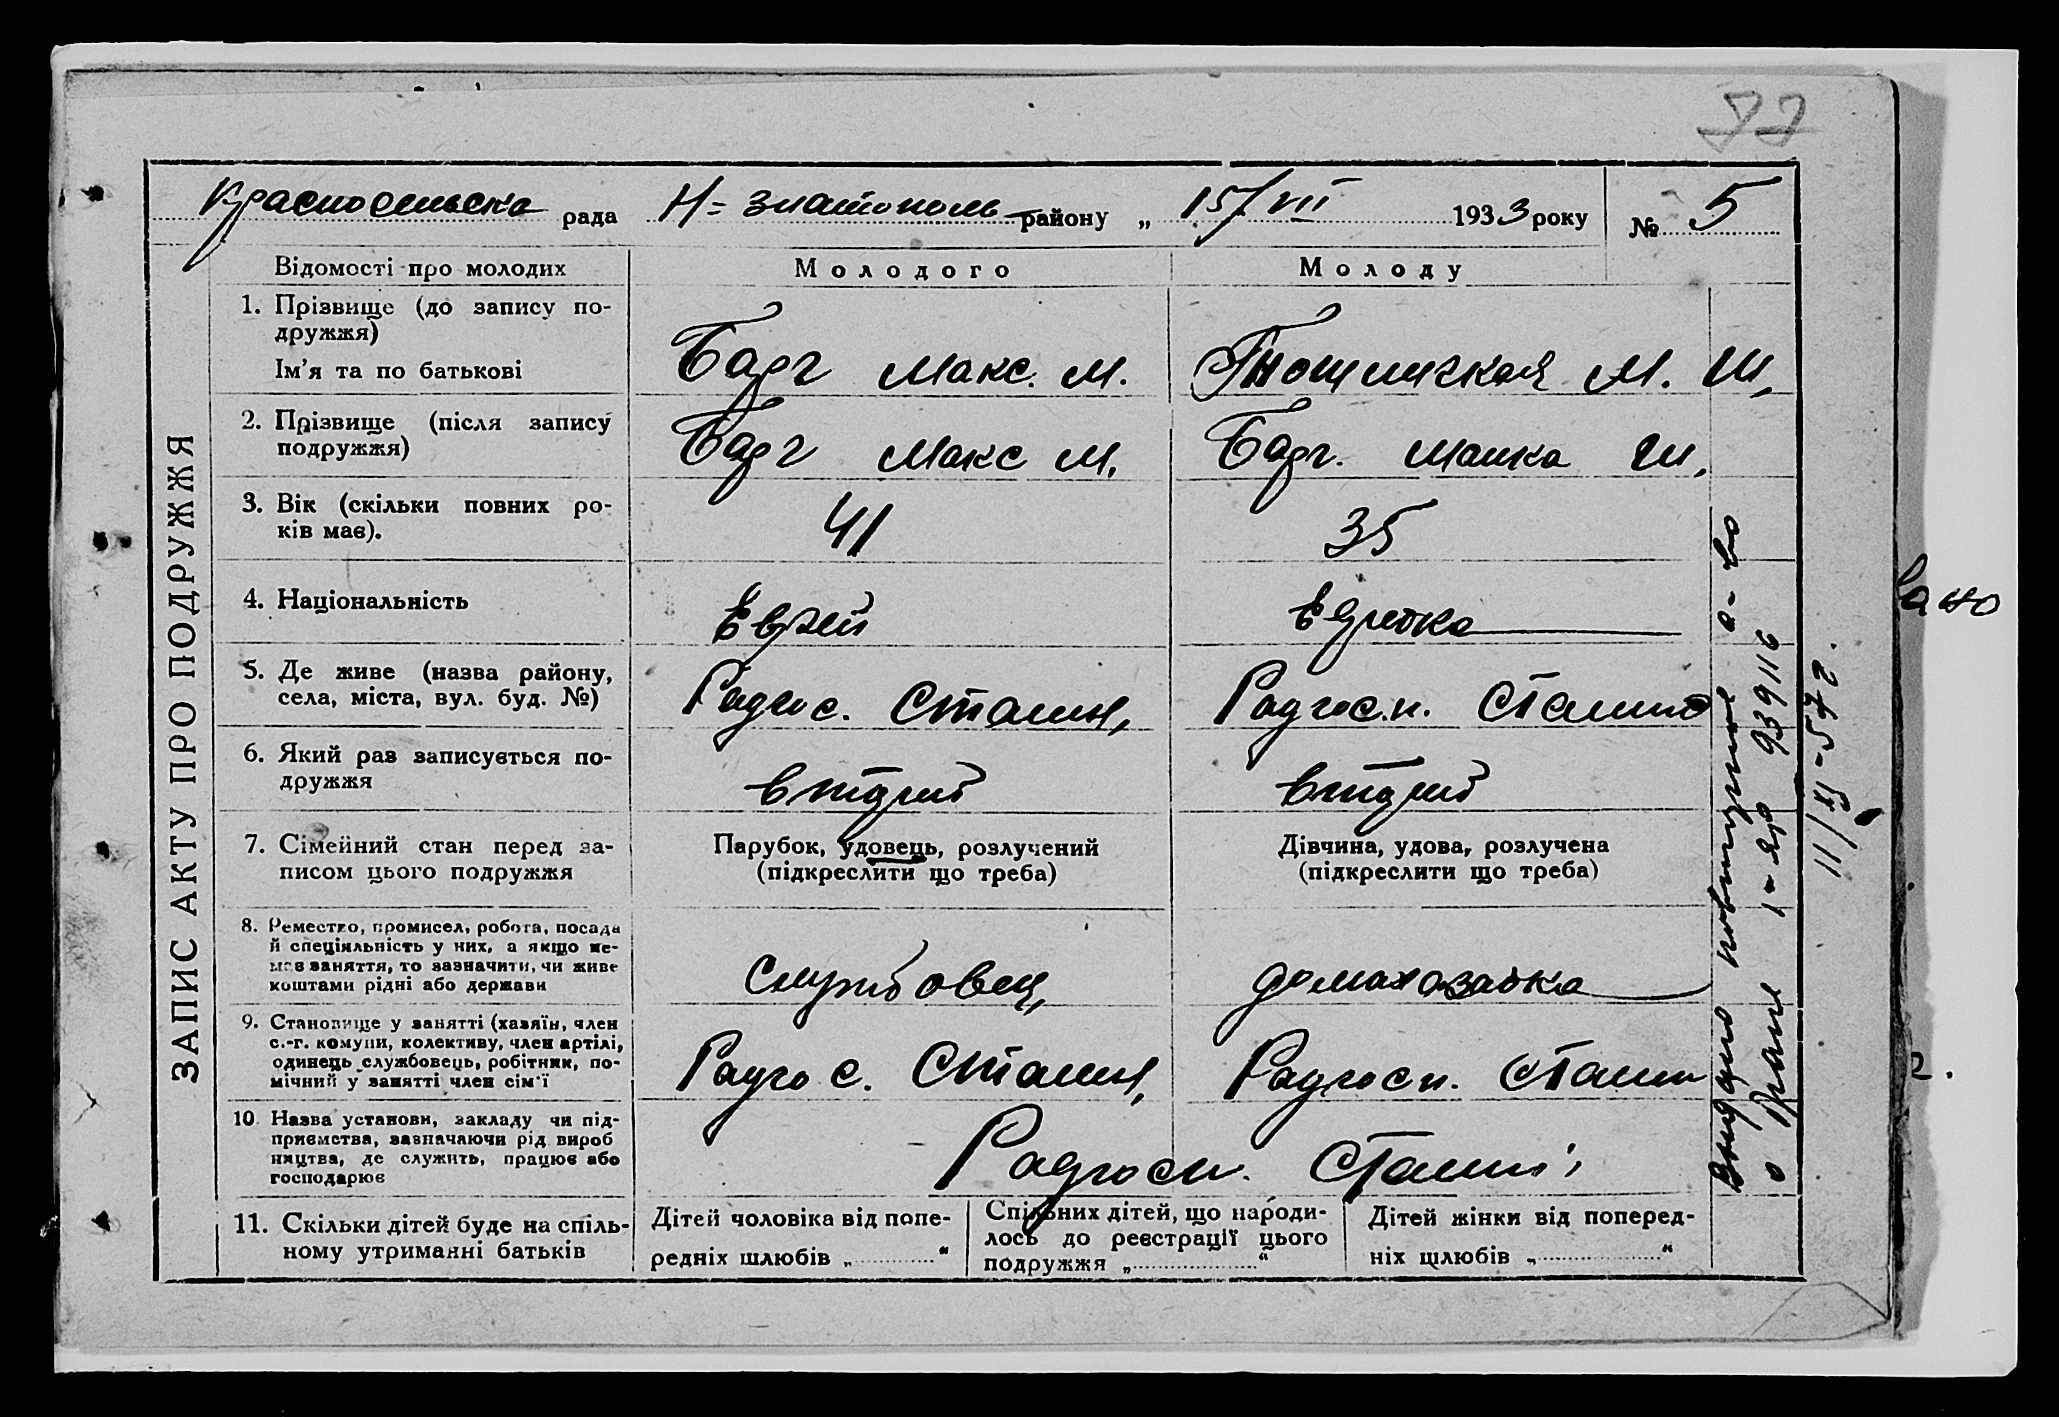 Красносельска рада Н=Златополь району „ 15/VII 1933 року № 5
ЗАПИС АКТУ ПРО ПОДРУЖЖЯ
Відомості про молодих Молодого Молоду
1. Прізвище (до запису по-
дружжя)
Ім'я та по батькові Барг Макс. М. М. Ш,
2. Прізвище (після запису
подружжя) Барг Макс М. Барг. Манка Ш,
3. Вік (скільки повних ро-
ків має). 41 35
4. Національність Еврей Еврейка
5. Де живе (назва району,
села, міста, вул. буд. №) Радгос. Сталін, Радгосп. Сталіна
6. Який раз записується по-
дружжя втдрий втдрий
7. Сімейний стан перед за-
писом цього подружжя
Парубок, удовець, розлучений
(підкреслити що треба)
Дівчина, удова, розлучена
(підкреслити що треба)
8. Ремество, промисел, робота, посада
й спеціяльність у них, а якщо не-
має заняття, то зазначити, чи живе
коштами рідні або держави
Службовец, домахозайка
9. Становище у занятті (хазяїн, член
с.-г. комуни, колективу, член артілі,
одинець службовець, робітник, по-
мічний у занятті член сім'ї
Радгос. Сталін, Радгосп. Сталін
10. Назва установи, закладу чи під-
приємства, зазначаючи рід вироб
ництва, де служить, працює або
господарює
Радгосп. Сталін
11. Скільки дітей буде на спіль-
ному утриманні батьків
Дітей чоловіка від попе-
редніх шлюбів „ “
Спільних дітей, що народи-
лось до реєстрації цього
подружжя „ “
Дітей жінки від поперед-
ніх шлюбів „ “
Выдано повторное с-во
о браке 1-ЯР 939116
11/XI-57 г.